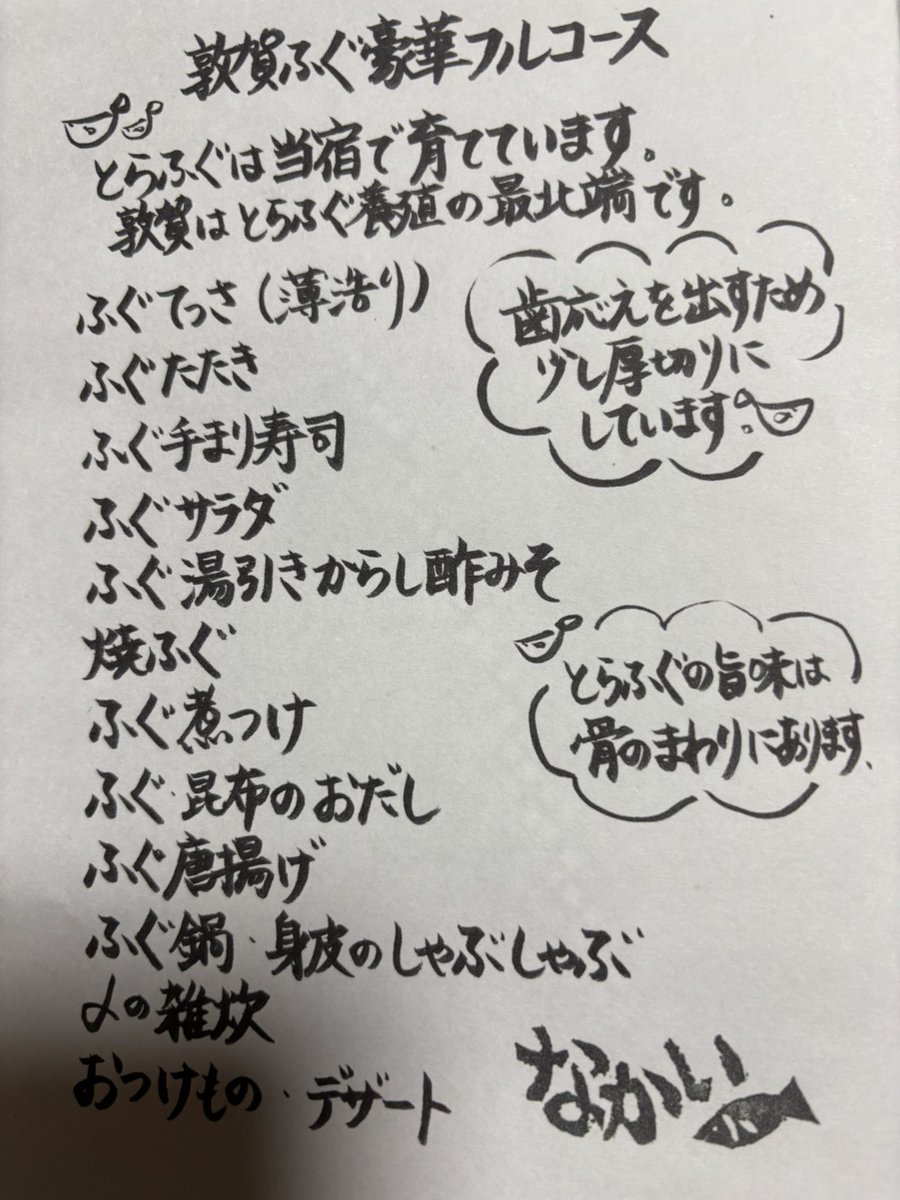 敦賀ふぐ豪華フルコース
とらふぐは当宿で育てています。
敦賀はとらふぐ養殖の最北端です。
ふぐてっさ(薄造り)
歯応えを出すため
少し厚切りに
しています。
ふぐたたき
ふぐ手まり寿司
ふぐサラダ
ふぐ湯引きからし酢みそ
焼ふぐ
とらふぐの旨味は
骨のまわりにあります、
ふぐ煮つけ
ふぐ・昆布のおだし
ふぐ唐揚げ
ふぐ鍋・身皮のしゃぶしゃぶ
〆の雑炊
おつけもの・デザート
なかい